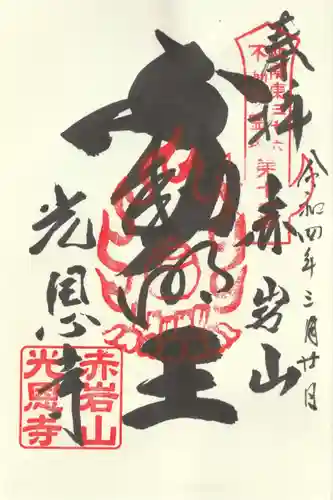 奉拝
赤岩山
令和四年三月廿日
不動明王
光恩寺
赤岩山
光恩寺